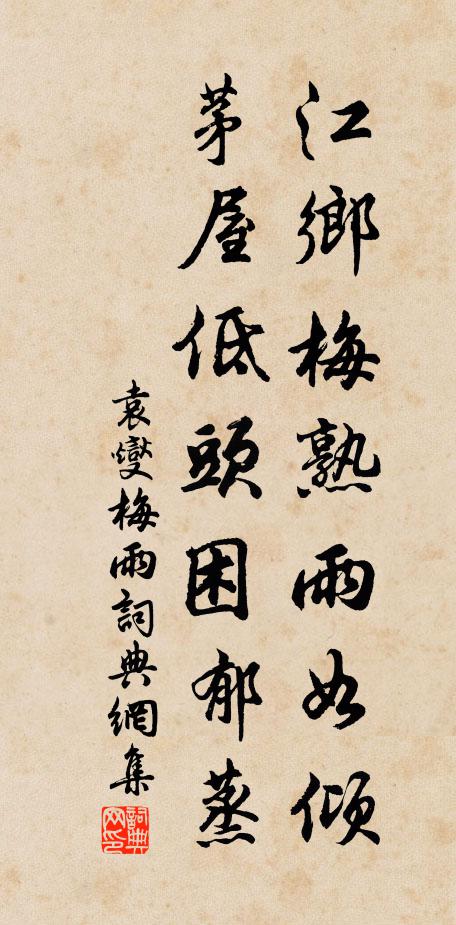 江鄉梅熟雨如傾
茅屋低頭困郁蒸
袁燮梅雨詞典網集
詞典网印